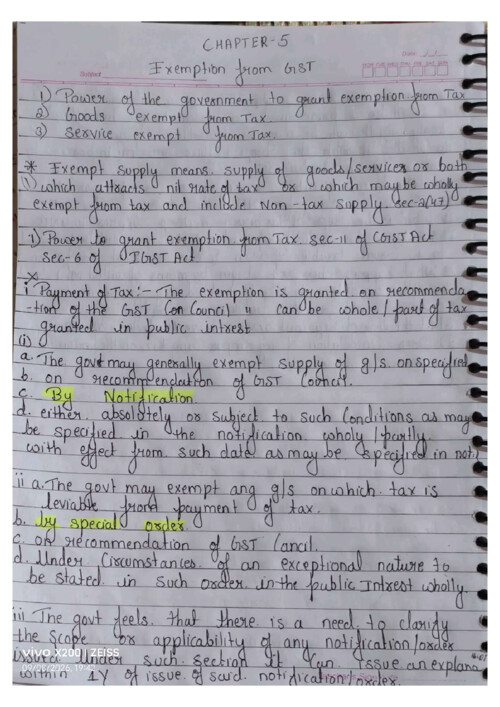 CHAPTER-5
Date / /
Exemption from GST
1) Power of the government to grant exemption from Tax
2) Goods exempt from Tax.
3) Service exempt from Tax.
* Exempt supply means supply of goods/services or both
(1) which attracts nil rate of tax or which may be wholy
exempt from tax and include Non-tax supply. Sec-2(47)
1) Power to grant exemption from Tax sec-11 of CGST Act
Sec-6 of IGST Act
i Payment of Tax:- The exemption is granted on recommenda
-tion of the GST Con Council " can be whole / part of tax
granted in public intrest
(i)
a. The govt may generally exempt supply of g/s on specified
b. on recommendation of GST Council.
c. By Notification
d. either absolutely or subject to such Conditions as may
be specified in the notification wholy / partly.
with effect from such date as may be specified in noti.
ii a. The govt may exempt ang g/s on which tax is
leviable from payment of tax.
b. by special order
c. on recommendation of GST Cancil.
d. Under Circumstances of an exceptional nature to
be stated in such order in the public Intrest wholly.
iii The govt feels that there is a need to clarify
the scope or applicability of any notification/order
issued under such section it Can issue an explana
within 1Y of issue of said notification/order.
vivo X200 | ZEISS
09/08/2026, 19:42